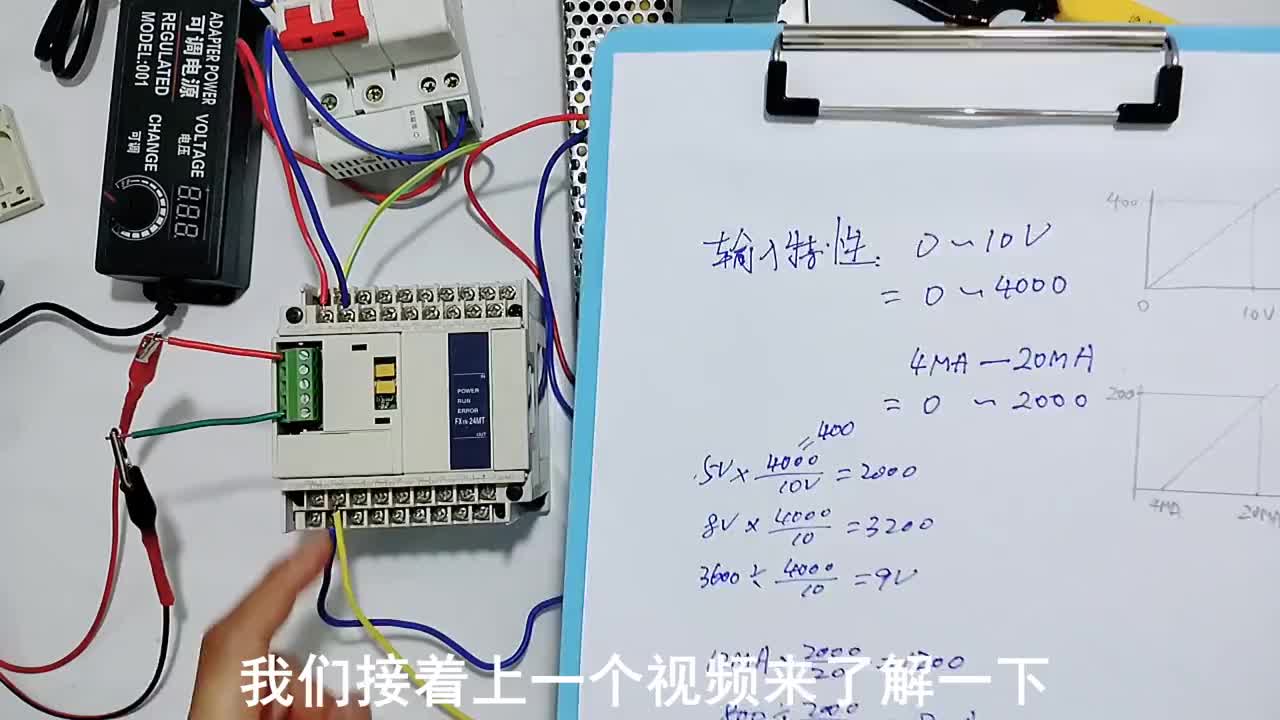 ADAPTER POWER
可调电源
REGULATED
MODEL:001
VOLTAGE
电压
CHANGE
可调
888
IN
POWER
RUN
ERROR
FX1N-24MT
OUT
输入特性: 0~10V
= 0~4000
4MA—20MA
= 0 ~ 2000
=400
5V×4000/10V=2000
8V×4000/10=3200
3600÷4000/10=9V
400
0
10V
200
4MA
20MA
我们接着上一个视频来了解一下